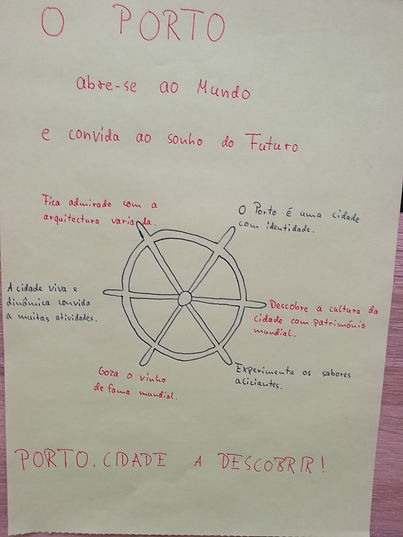 O PORTO
abre-se ao Mundo
e convida ao sonho do Futuro
Fica admirado com a
arquitectura variada.
O Porto é uma cidade
com identidade.
A cidade viva e
dinâmica convida
a muitas atividades.
Descobre a cultura da
cidade com património
mundial.
Goza o vinho
de fama mundial.
Experimenta os sabores
aliciantes.
PORTO. CIDADE A DESCOBRIR!